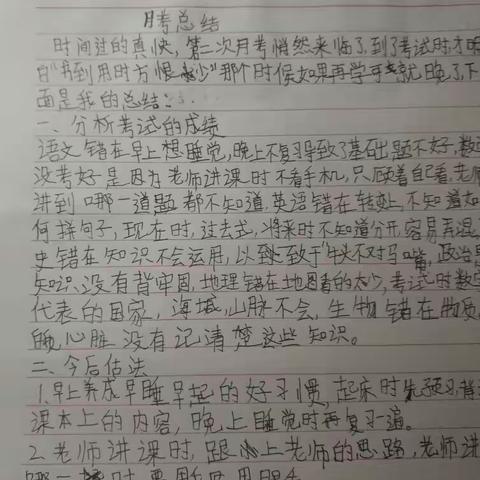 月考总结
时间过的真快,第二次月考悄然来临了,到了考试时才明
白"书到用时方恨少"那个时候如果再学可就晚了,下
面是我的总结:
一、分析考试的成绩
语文错在早上想睡觉,晚上不复习导致了基础题不好,数
没考好是因为老师讲课时不看手机,只顾着自己看,老师
讲到哪一道题都不知道,英语错在转变,不知道如
何拼句子,现在时,过去式,将来时不知道分开,容易弄混
史错在知识不会运用,以至于"牛头不对马嘴",政治
知识没有背牢固,地理错在地图看的太少,考试时数字
代表的国家,海域,山脉不会,生物错在物质
心脏没有记清楚这些知识。
二、今后
1.早上养成早睡早起的好习惯,起床时先预习,背
课本上的内容,晚上睡觉时再复习一遍。
2.老师讲课时,跟上老师的思路,老师讲
哪一